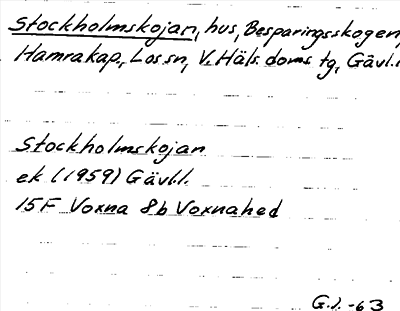 Stockholmskojan, hus, Besparingsskogen,
Hamrakap., Los sn, V. Häls. doms. tg, Gävl.l.
Stockholmskojan
ek (1959) Gävl.l.
15F Voxna 8b Voxnahed
G.J. -63